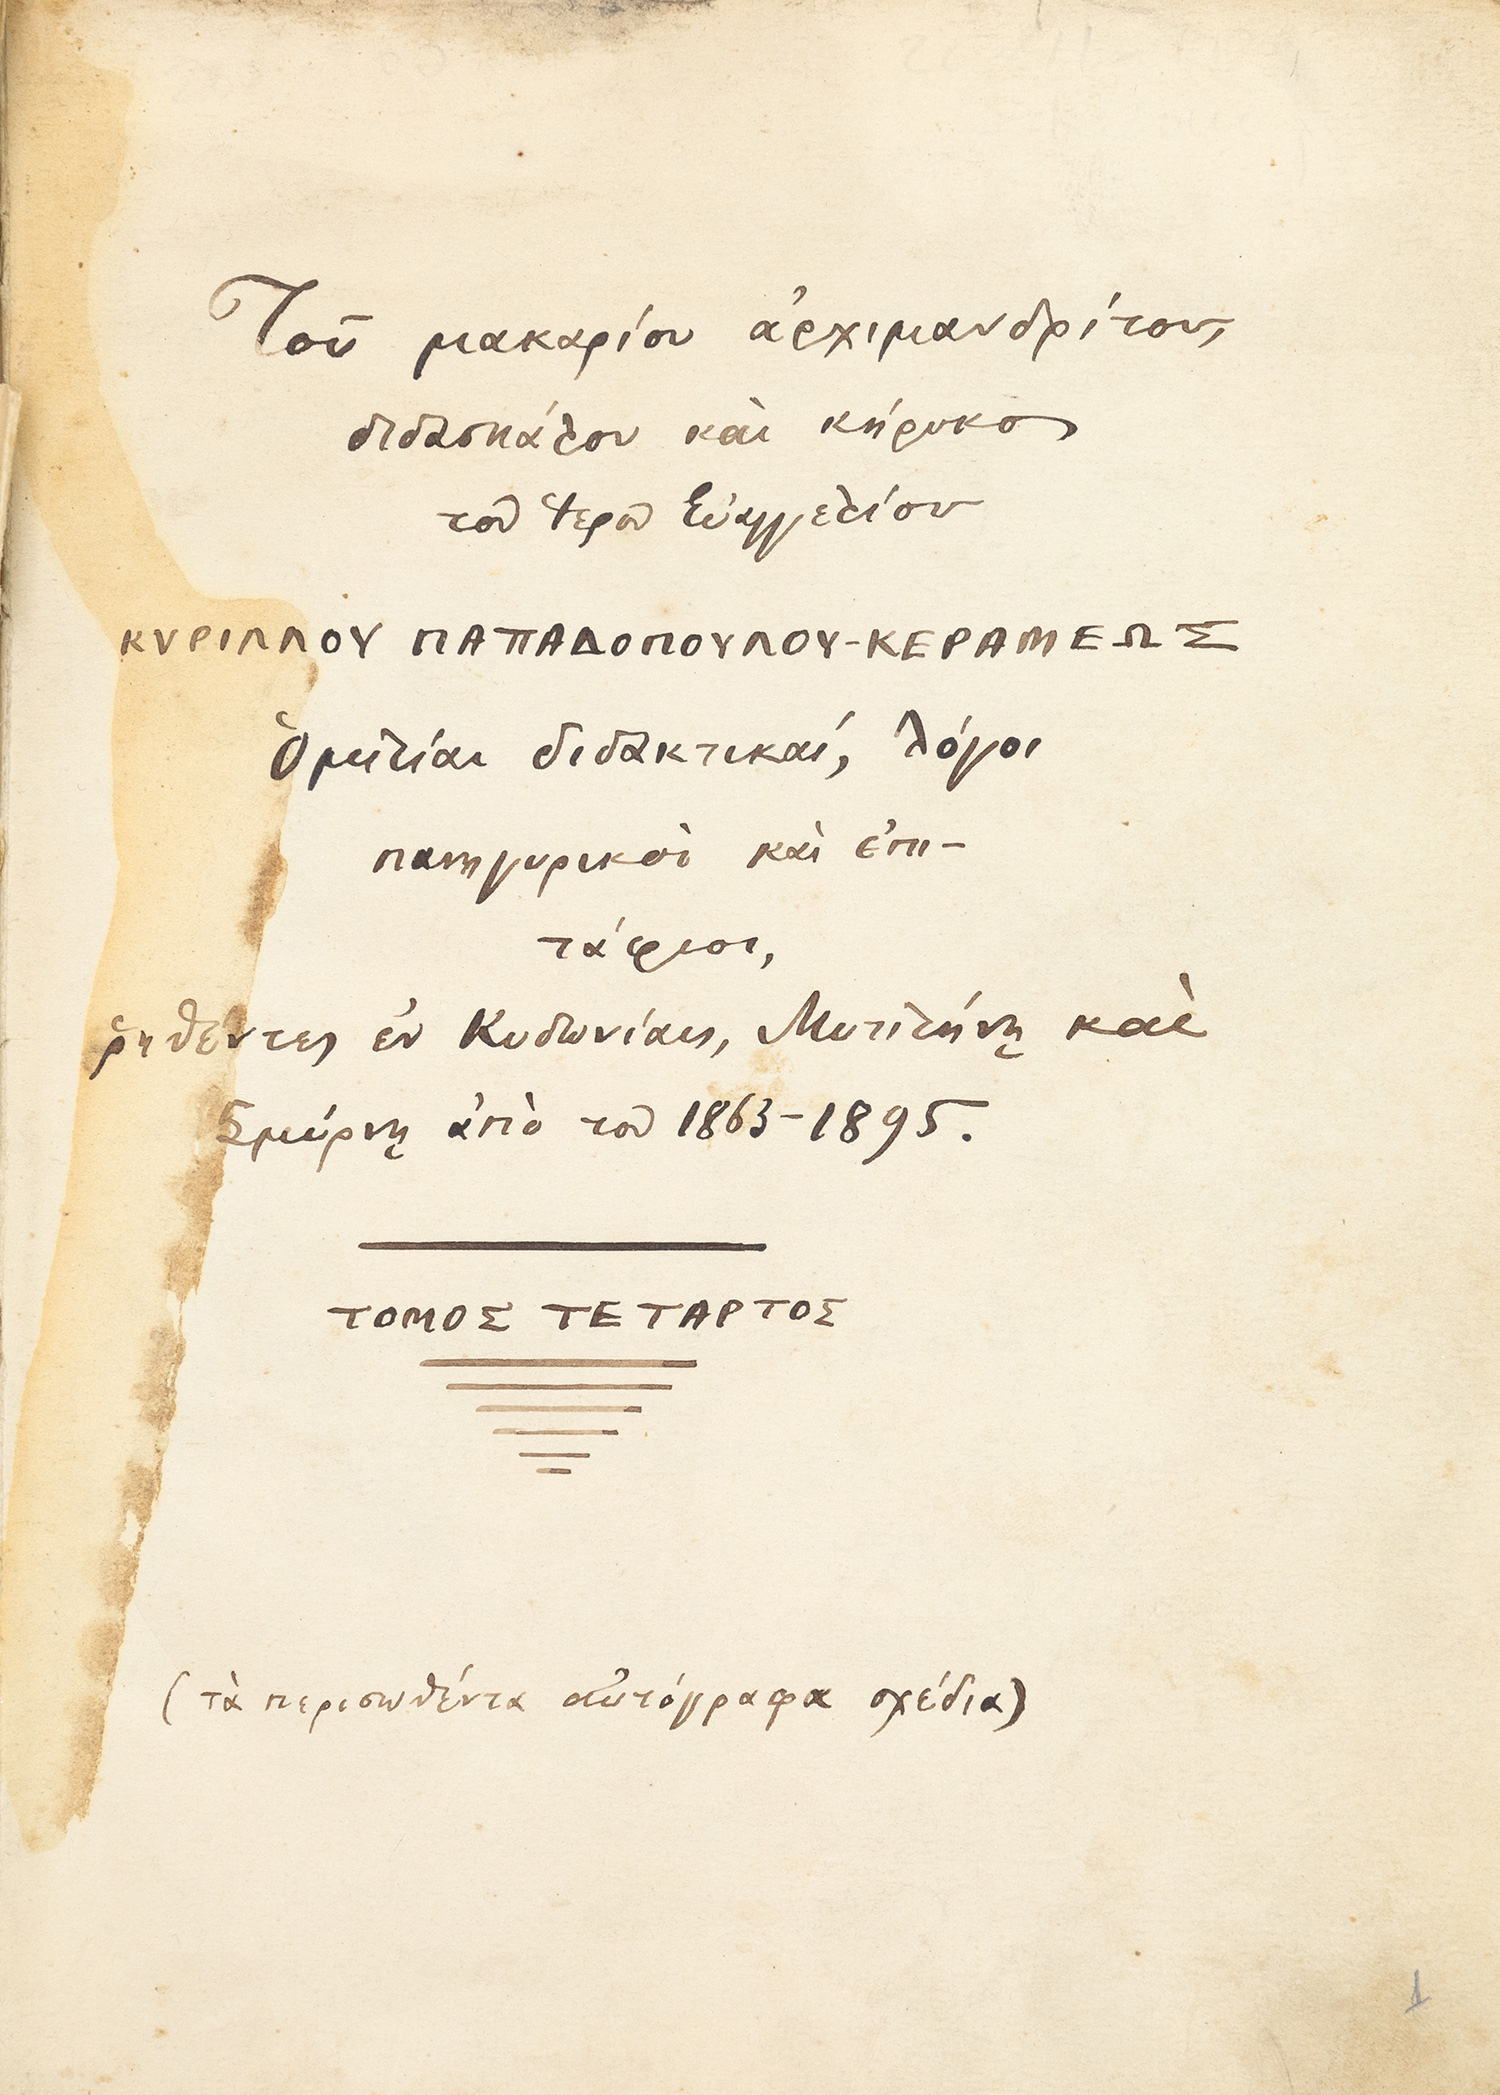 Τοῦ μακαρίου ἀρχιμανδρίτου,
διδασκάλου καὶ κήρυκος
τοῦ ἱεροῦ Εὐαγγελίου
ΚΥΡΙΛΛΟΥ ΠΑΠΑΔΟΠΟΥΛΟΥ-ΚΕΡΑΜΕΩΣ
Ὁμιλίαι διδακτικαί, λόγοι
πανηγυρικοὶ καὶ ἐπι-
τάφιοι,
ῥηθέντες ἐν Κυδωνίαις, Μυτιλήνῃ καὶ
Σμύρνῃ ἀπὸ τοῦ 1863-1895.
ΤΟΜΟΣ ΤΕΤΑΡΤΟΣ
(τὰ περισωθέντα αὐτόγραφα σχέδια)
1